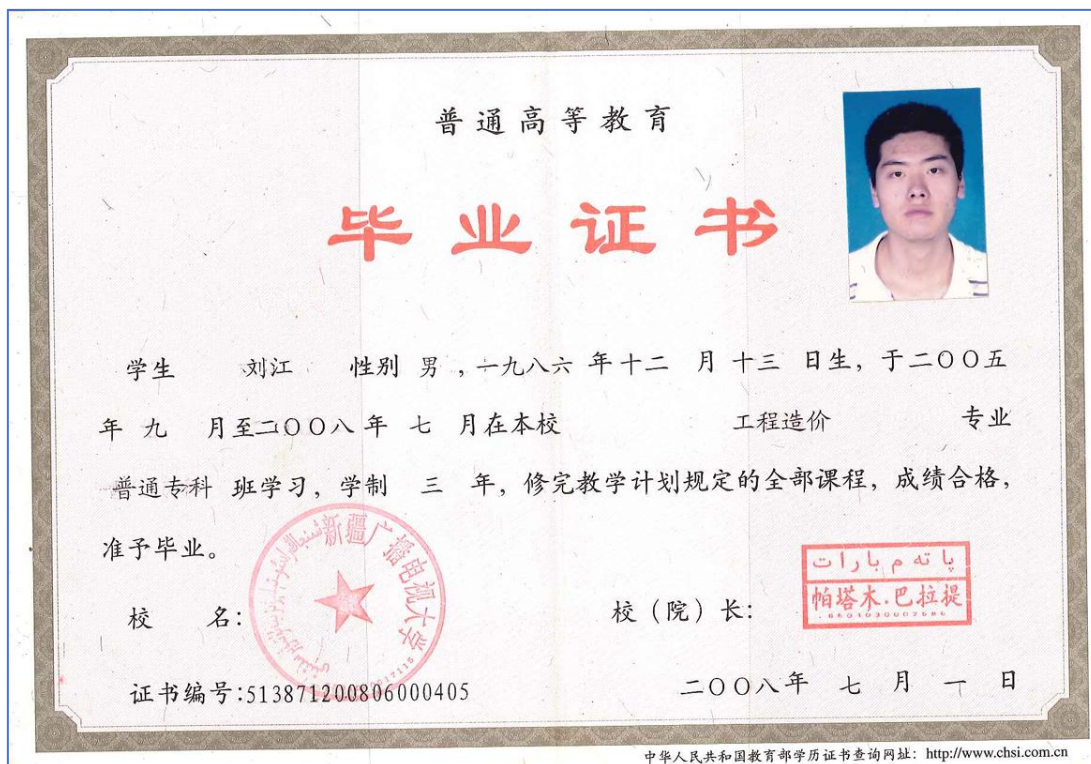 普通高等教育
毕业证书
学生 刘江 性别 男，一九八六 年 十二 月 十三 日生，于二〇〇五
年 九 月至二〇〇八 年 七 月在本校 工程造价 专业
普通专科 班学习，学制 三 年，修完教学计划规定的全部课程，成绩合格，
准予毕业。
新疆广播电视大学
پاتەم بارات
帕塔木.巴拉提
校 名：
校（院）长：
证书编号:513871200806000405
二〇〇八年 七 月 一 日
中华人民共和国教育部学历证书查询网址：http://www.chsi.com.cn